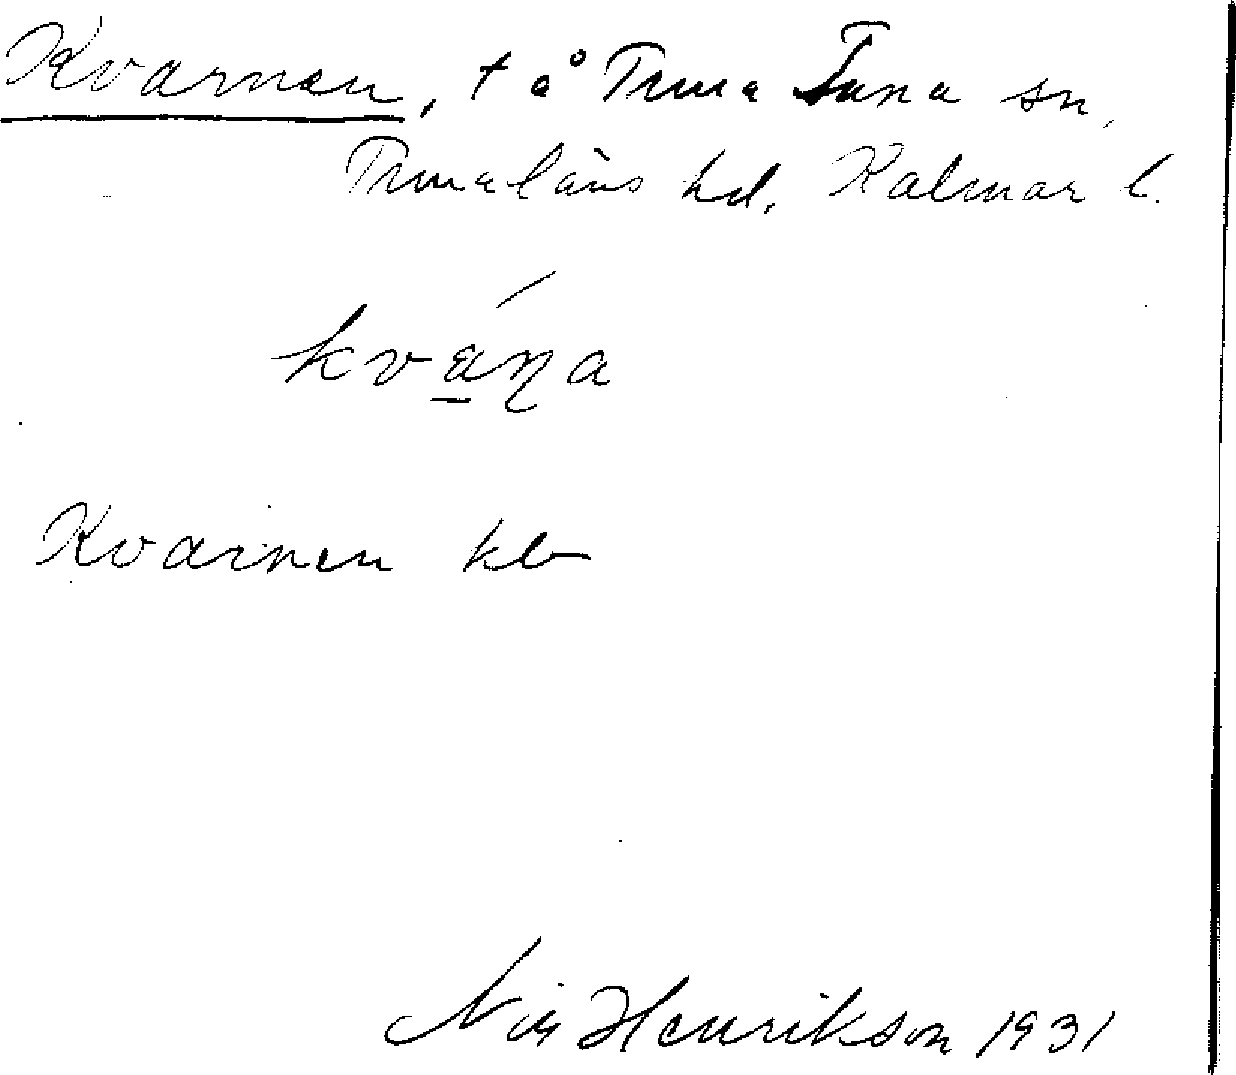 Kvarnen, t å Tuna Tuna sn,
Tunaläns hd, Kalmar l.
kvaɳa
Kvarnen
Nils Henrikson 1931